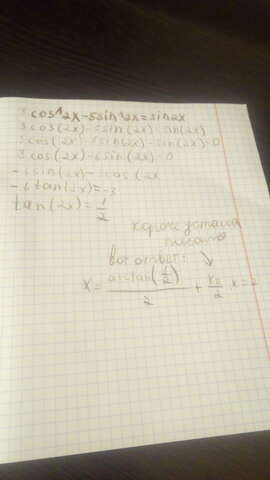 3cos^2x-5sin^2x=sin2x
3cos(2x)-5sin(2x)=sin(2x)
3cos(2x)-5sin(2x)-sin(2x)=0
3cos(2x)-6sin(2x)=0
-6sin(2x)=-3cos(2x
-6tan(2x)=-3
tan(2x)=1/2
короче устала
писать
вот ответ:
x= arctan(1/2)/2 + kπ/2